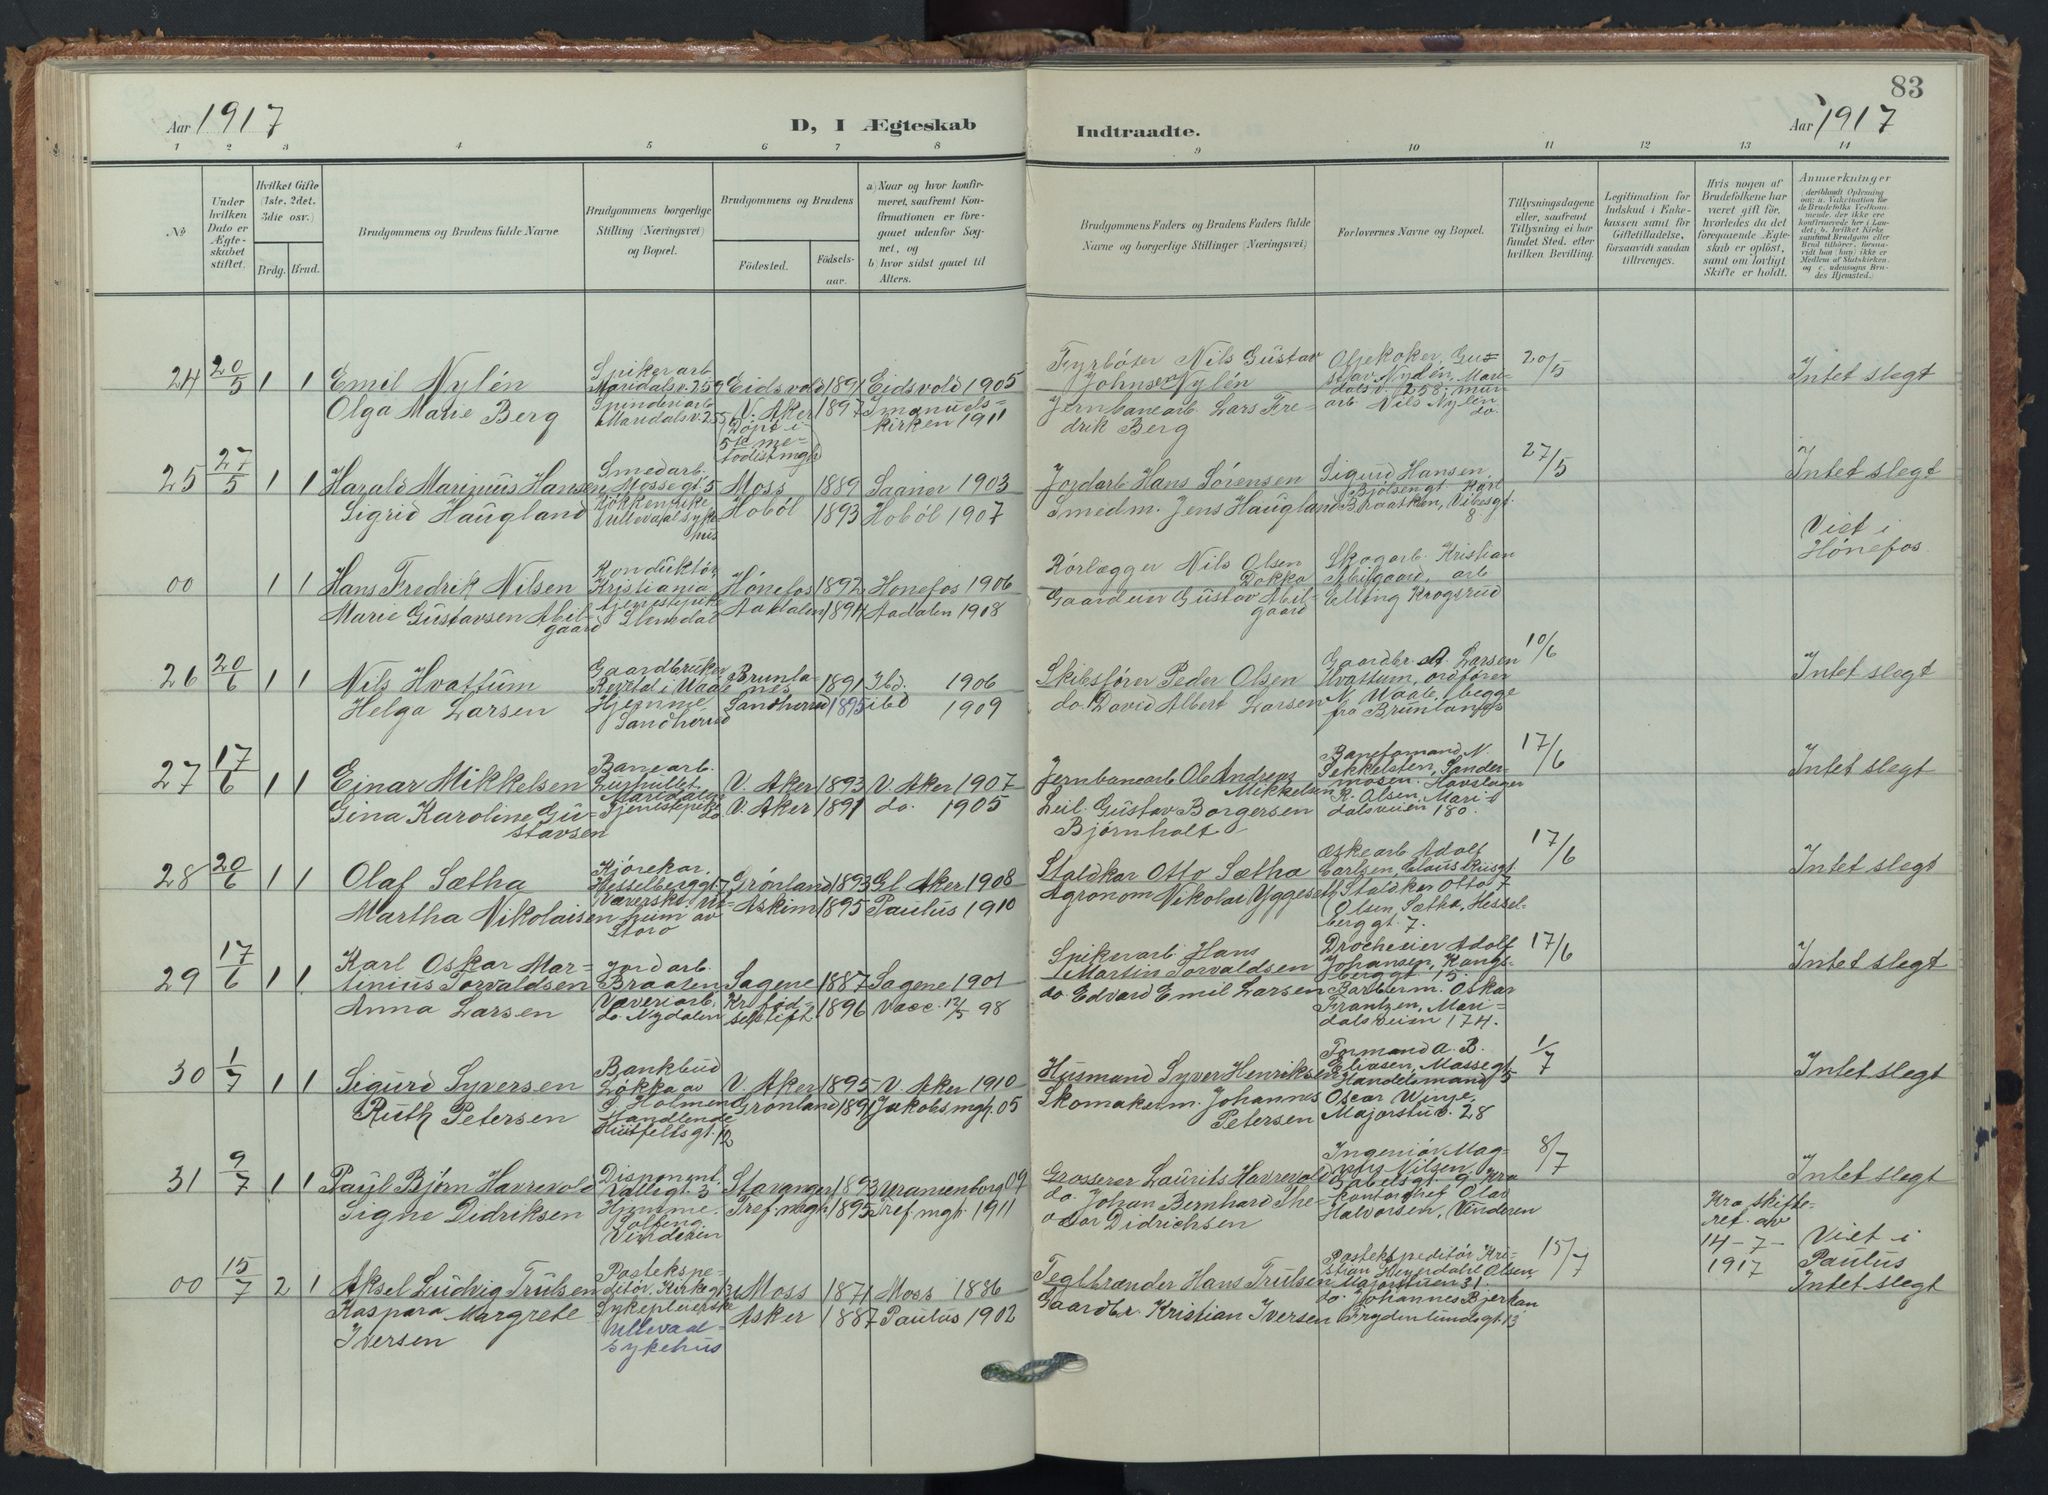 83
Aar 1917
D, I Ægteskab
Indtraadte.
Aar 1917
1 2 3 4 5 6 7 8 9 10 11 12 13 14
№
Under hvilken Dato er Ægteskabet stiftet.
Hvilket Gifte (1ste, 2det, 3die osv.)
Brdg. Brud.
Brudgommens og Brudens fulde Navne.
Brudgommens borgerlige Stilling (Næringsvei) og Bopæl.
Brudgommens og Brudens
Fødested.
Fødselsaar.
a) Naar og hvor konfirmeret, saafremt Konfirmationen er foregaaet udenfor Sognet, og
b) hvor sidst gaaet til Alters.
Brudgommens Faders og Brudens Faders fulde Navne og borgerlige Stillinger (Næringsvei)
Forlovernes Navne og Bopæl.
Tillysningsdagene eller, saafremt Tillysning ei har fundet Sted, efter hvilken Bevilling.
Legitimation for Indskud i Enkekassen samt for Giftetilladelse, forsaavidt saadan tiltrænges.
Hvis nogen af Brudefolkene har været gift før, hvorledes da det foregaaende Ægteskab er opløst, samt om lovligt Skifte er holdt.
Anmerkninger
24 20/5 1 1 Emil Nylén Spikerarb. Maridalsv. 259 Eidsvold 1891 Eidsvold 1905 Fyrbøter Nils Gustav Johnsen Nylén Oljekoker Gustav Nydén, Maridalsv. 258, murarb. Nils Nylén do. 20/5 Intet slegt
Olga Marie Berg Spinderiarb. Maridalsv. 255 V. Aker (Døpt i 5te metodistmgh) 1897 Imanuelskirken 1911 Jernbanearb. Lars Fredrik Berg
25 27/5 1 1 Harald Marinius Hansen Smedarb. Mossegt 5 Moss 1889 Saaner 1903 Jordarb Hans Sørensen Sigurd Hansen, Bjølsengt. Karl Braathen, Vibesgt. 8. 27/5 Intet slegt
Sigrid Haugland Kjøkkenpike Ullevaal sykehus Hobøl 1893 Hobøl 1907 Smedm. Jens Haugland
00 1 1 Hans Fredrik Nilsen Konduktør, Kristiania Hønefos 1892 Hønefos 1906 Rørlægger Nils Olsen Dokka Skogarb. Kristian Abilgaard, arb Elling Krogsrud Viet i Hønefos
Marie Gustavsen Abilgaard Tjenestepike Aadalen 1891 Aadalen 1908 Gaardeier Gustav Abilgaard
26 20/6 1 1 Nils Hvattum Gaardbruker Brunlanes 1891 Ibd. 1906 Skibsfører Peder Olsen Gaardbr. A. Larsen Hvattum, ordfører N. Vaale, begge fra Brunlanes 10/6 Intet slegt
Helga Larsen Hjemme, Sandherred Sandherred 1895 ibd 1909 do. David Albert Larsen
27 17/6 1 1 Einar Mikkelsen Banearb. Maridalen V. Aker 1893 V. Aker 1907 Jernbanearb Ole Andreas Mikkelsen Baneformand N. Sandermosen. Havslager R. Olsen, Maridalsveien 180. 17/6 Intet slegt
Gina Karoline Gustavsen Tjenestepike do V. Aker 1891 do. 1905 Leil. Gustav Borgersen Bjørnholt
28 20/6 1 1 Olaf Sætha Kjørekar. Hesselberggt 7 Grønland 1893 Gl Aker 1908 Staldkar Otto Sætha Æskearb Adolf Carlsen, Claus Riisgt. 7 Staldkar Otto (Olsen) Sætha, Hesselberggt. 7. 17/6 Intet slegt
Martha Nikolaisen Væverske Storo Askim 1895 Paulus 1910 Agronom Nikolai Yggeseth
29 17/6 1 1 Karl Oskar Martinius Torvaldsen Jordarb. Braaten Sagene 1887 Sagene 1901 Spikerarb Hans Martin Torvaldsen Adolf Johansen, Kongsberggt 15. Barberm. Oskar Frantzen, Maridalsveien 174. 17/6 Intet slegt
Anna Larsen Væveriarb. do. Nydalen Kr. fødselsstift. 1896 Vacc. 12/5 98 do. Edvard Emil Larsen
30 1/7 1 1 Sigurd Syversen Bankbud Løkka av Holmend V. Aker 1895 V. Aker 1910 Husmand Syver Henriksen Formand A. B. Mossegt 5 Handelsmand Oscar Vinje, Majorstuv. 28 1/7 Intet slegt
Ruth Petersen Handlende Huitfeldsgt. 12 Grønland 1891 Jakobs mgh. 05 Skomakerm. Johannes Petersen
31 9/7 1 1 Paul Bjørn Havrevold Disponent, Valligt. 3 Stavanger 1893 Uranienborg 09 Grosserer Laurits Havrevold Ingeniør Magnus Nilsen, Gabelsgt. 9, Kra kontorchef Olav Halvorsen, Vinderen 8/7 Intet slegt
Signe Didriksen Hjemme. Solfeng. Vinderen Tref. mgh. 1895 Tref mgh. 1911 do. Johan Bernhard Theodor Didrichsen
00 15/7 2 1 Aksel Ludvig Trulsen Postekspeditør. Kirkegt Moss 1871 Moss 1886 Teglbrænder Hans Trulsen Postekspeditør Kristian Heyerdahl Olsen, Majorstuen 31. do. Johannes Bjerkan Frydenlundsgt 13 15/7 Kra skifteret. av 14-7-1917 Viet i Paulus Intet slegt
Kaspara Margrete Iversen Sykepleierske Ullevaal sykehus Asker 1887 Paulus 1902 Gaardbr. Kristian Iversen